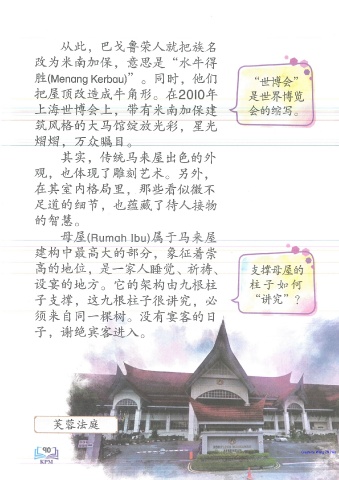 从此，巴戈鲁荣人就把族名
改为米南加保，意思是“水牛得
胜(Menang Kerbau)”。同时，他们
把屋顶改造成牛角形。在2010年
上海世博会上，带有米南加保建
筑风格的大马馆绽放光彩，星光
熠熠，万众瞩目。
其实，传统马来屋出色的外
观，也体现了雕刻艺术。另外，
在其室内格局里，那些看似微不
足道的细节，也蕴藏了待人接物
的智慧。
母屋(Rumah Ibu)属于马来屋
建构中最高大的部分，象征着崇
高的地位，是一家人睡觉、祈祷、
设宴的地方。它的架构由九根柱
子支撑，这九根柱子很讲究，必
须来自同一棵树。没有宾客的日
子，谢绝宾客进入。
“世博会”
是世界博览
会的缩写。
支撑母屋的
柱子如何
“讲究”？
芙蓉法庭
90
KPM